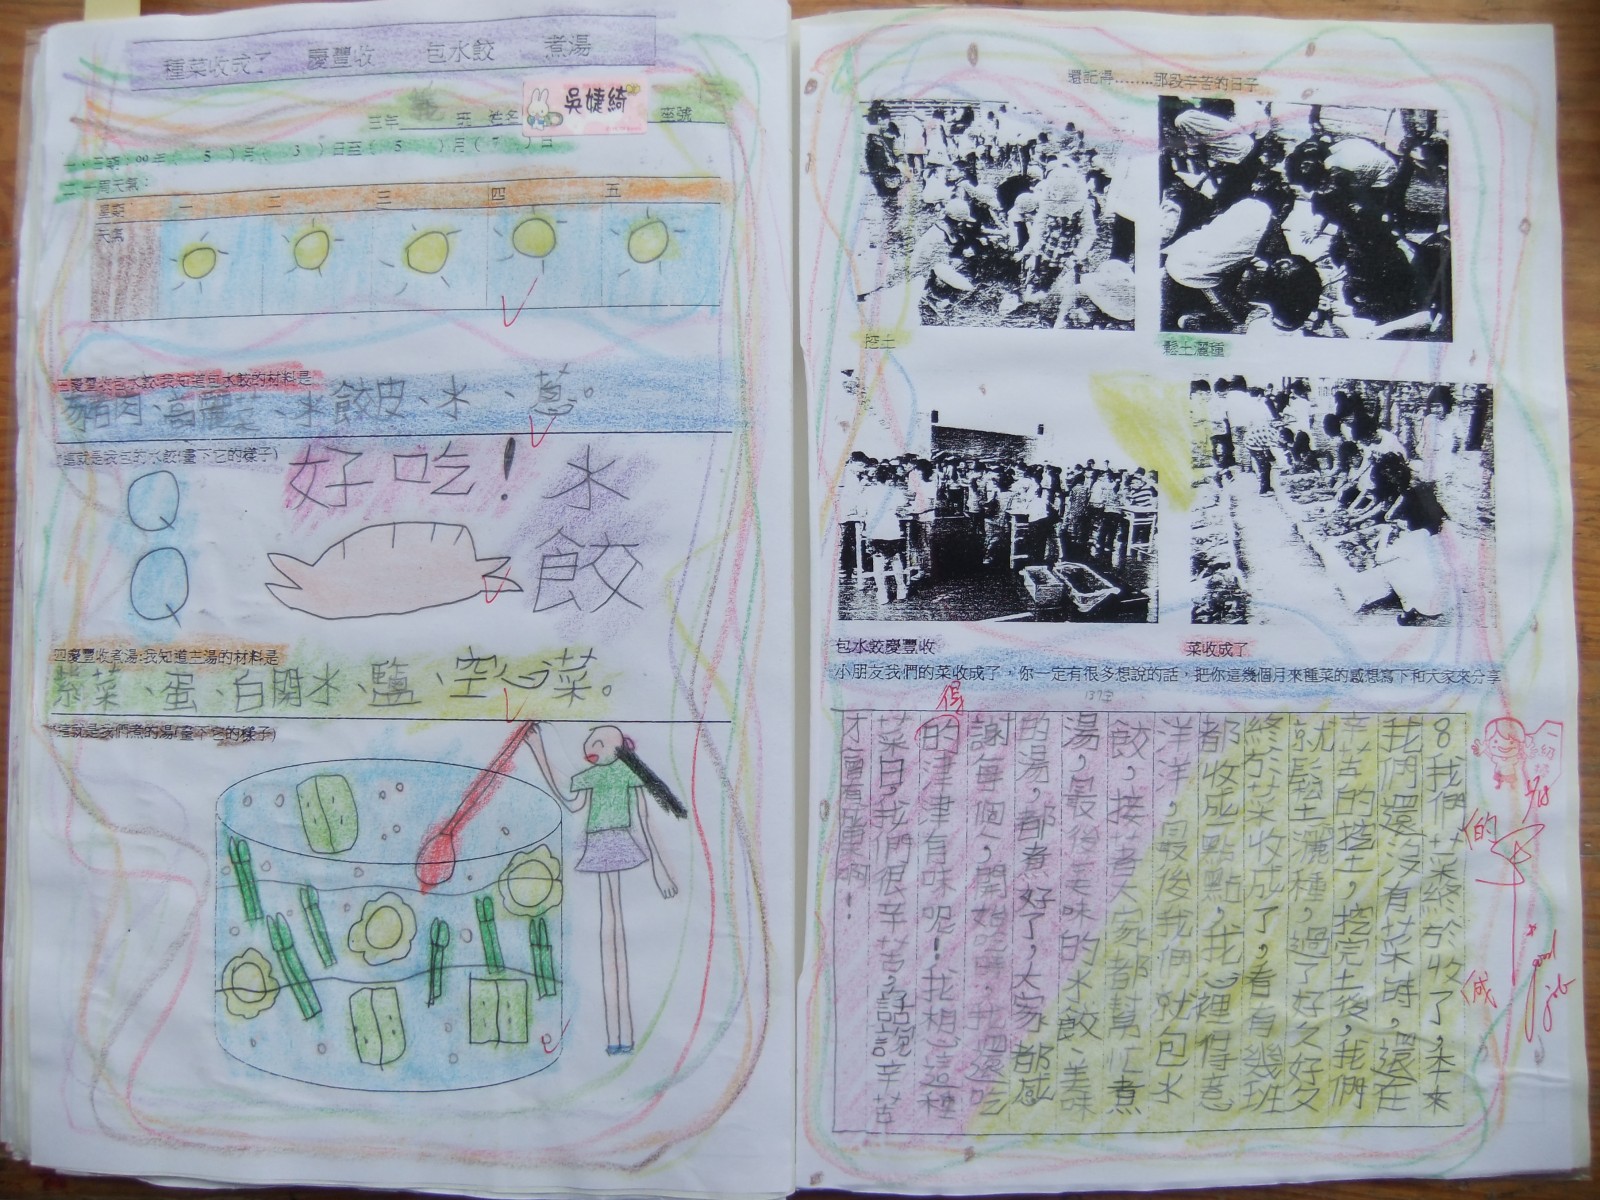 種菜收成了 慶豐收 包水餃 煮湯
三年 班 姓名 吳婕綺 座號
一、日期:99年( 5 )月( 3 )日至( 5 )月( 7 )日
二、一周天氣:
星期 一 二 三 四 五
天氣
三慶豐收包水餃:我知道包水餃的材料是
豬肉、高麗菜、水餃皮、水、蔥。
(這就是我包的水餃(畫下它的樣子)
好吃!水
餃
四慶豐收煮湯:我知道主湯的材料是
紫菜、蛋、白開水、鹽、空心菜。
(這就是我們煮的湯(畫下它的樣子)
還記得………那段辛苦的日子
挖土
鬆土灑種
包水餃慶豐收
菜收成了
小朋友我們的菜收成了，你一定有很多想說的話，把你這幾個月來種菜的感想寫下和大家來分享
137字
8我們菜終於收了，本來
我們還沒有菜時，還在
辛苦的挖土，挖完土後，我們
就鬆土灑種，過了好久好久
終於菜收成了，看有幾班
都收成一點點，我心裡得意
洋洋，最後我們就包水
餃，接者大家都幫忙煮
湯，最後美味的水餃、美味
的湯，都煮好了，大家都感
謝每個人，開始吃時，我還吃
的津津有味呢!我想這種
菜日，我們很辛苦，話說辛苦
才會有成果啊!
得
good
job